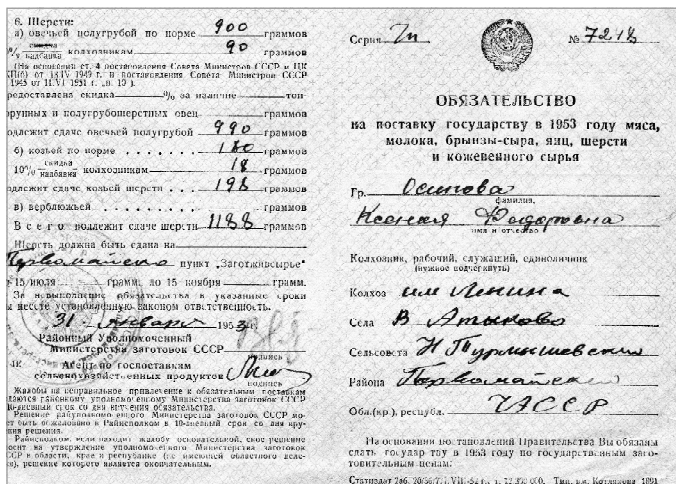 6. Шерсти:
а) овечьей полугрубой по норме 900 граммов
% скидка надбавка колхозникам 90 граммов
(На основании ст. 4 постановления Совета Министров СССР и ЦК
от 18 IV 1949 г. и постановления Совета Министров СССР
1945 от 11.VI 1951 г. п. 10).
предоставлена скидка % за наличие тон-
корунных и полугрубошерстных овец граммов
подлежит сдаче овечьей полугрубой 990 граммов
б) козьей по норме 180 граммов
10% скидка надбавка колхозникам 18 граммов
подлежит сдаче козьей шерсти 198 граммов
в) верблюжьей граммов
Всего подлежит сдаче шерсти 1188 граммов
Шерсть должна быть сдана на
Первомайско пункт „Заготживсырье"
15/июля грамм. до 15 ноября грамм.
За невыполнение обязательства в указанные сроки
вы несете установленную законом ответственность.
31 Января 1953 г.
Районный Уполномоченный
Министерства заготовок СССР
подпись
Агент по госпоставкам
сельскохозяйственных продуктов
подпись
Жалобы на неправильное привлечение к обязательным поставкам
подаются районному уполномоченному Министерства заготовок СССР
в 10-дневный срок со дня вручения обязательства.
Решение районного уполномоченного Министерства заготовок СССР мо-
жет быть обжаловано в Райисполком в 10-дневный срок со дня вру-
чения решения.
Райисполком, если находит жалобу основательной, свое решение
вносит на утверждение уполномоченного Министерства заготовок
СССР в области, крае и республике (не имеющей областного деле-
ния), решение которого является окончательным.
Серия Чп № 7218
ОБЯЗАТЕЛЬСТВО
на поставку государству в 1953 году мяса,
молока, брынзы-сыра, яиц, шерсти
и кожевенного сырья
Гр. Осипова
фамилия,
Ксения Федоровна
имя и отчество
Колхозник, рабочий, служащий, единоличник
(нужное подчеркнуть)
Колхоз им Ленина
Села В Атыково
Сельсовета Н Турмышевский
Района Первомайского
Обл.(кр.), республ. ЧАССР
На основании постановлений Правительства Вы обязаны
сдать государству в 1953 году по государственным заго-
товительным ценам: